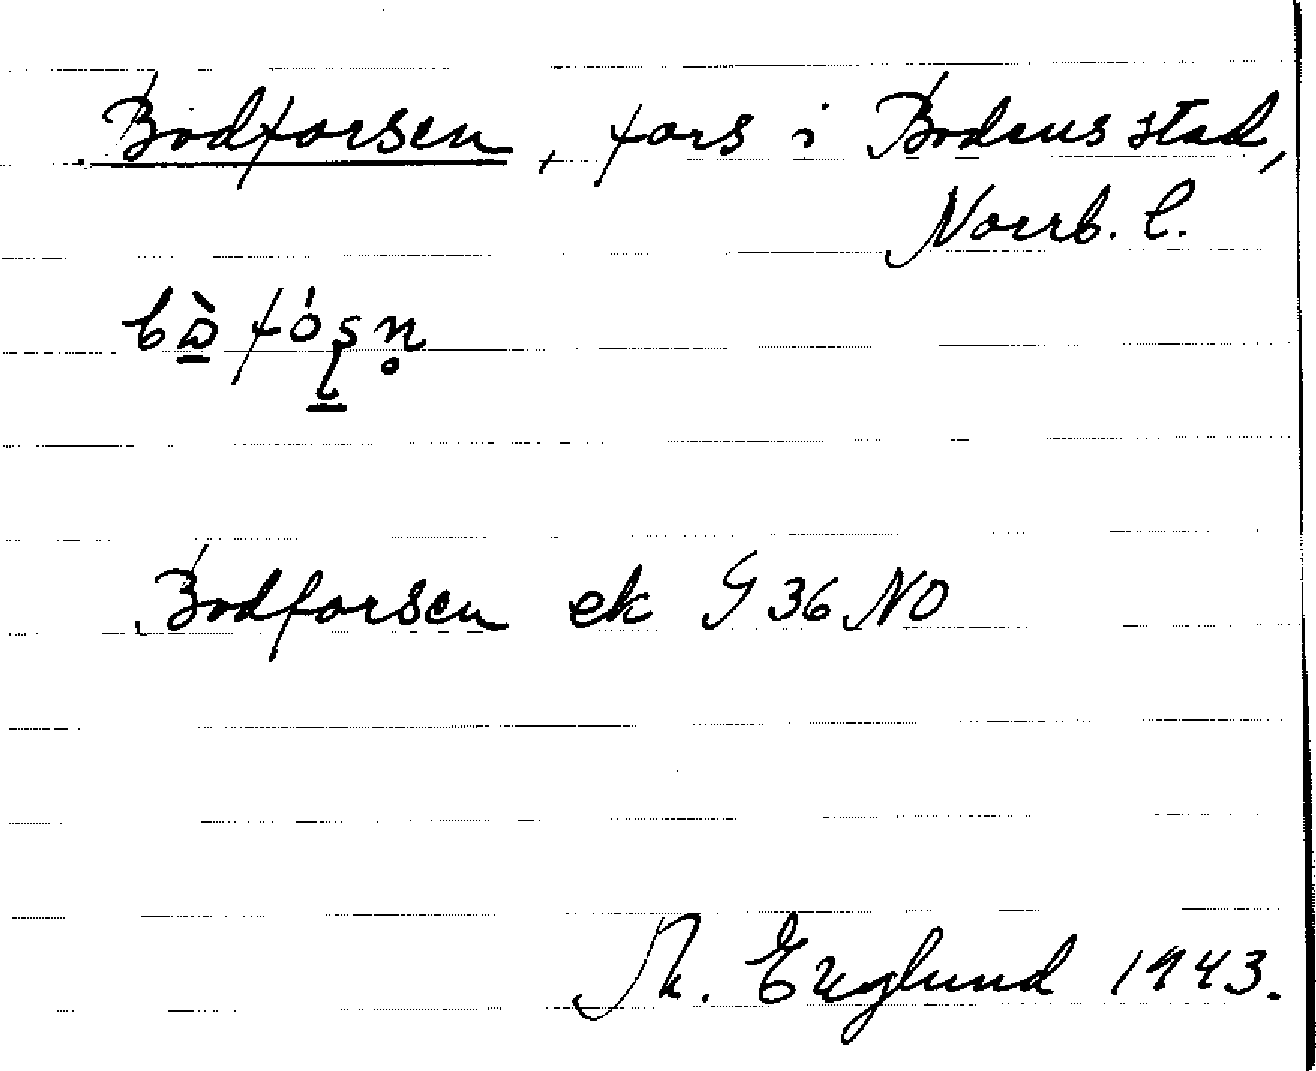 Bodforsen, fors i Bodens stad,
Norrb. l.
Bodforsen ek G 36 NO
Englund 1943.